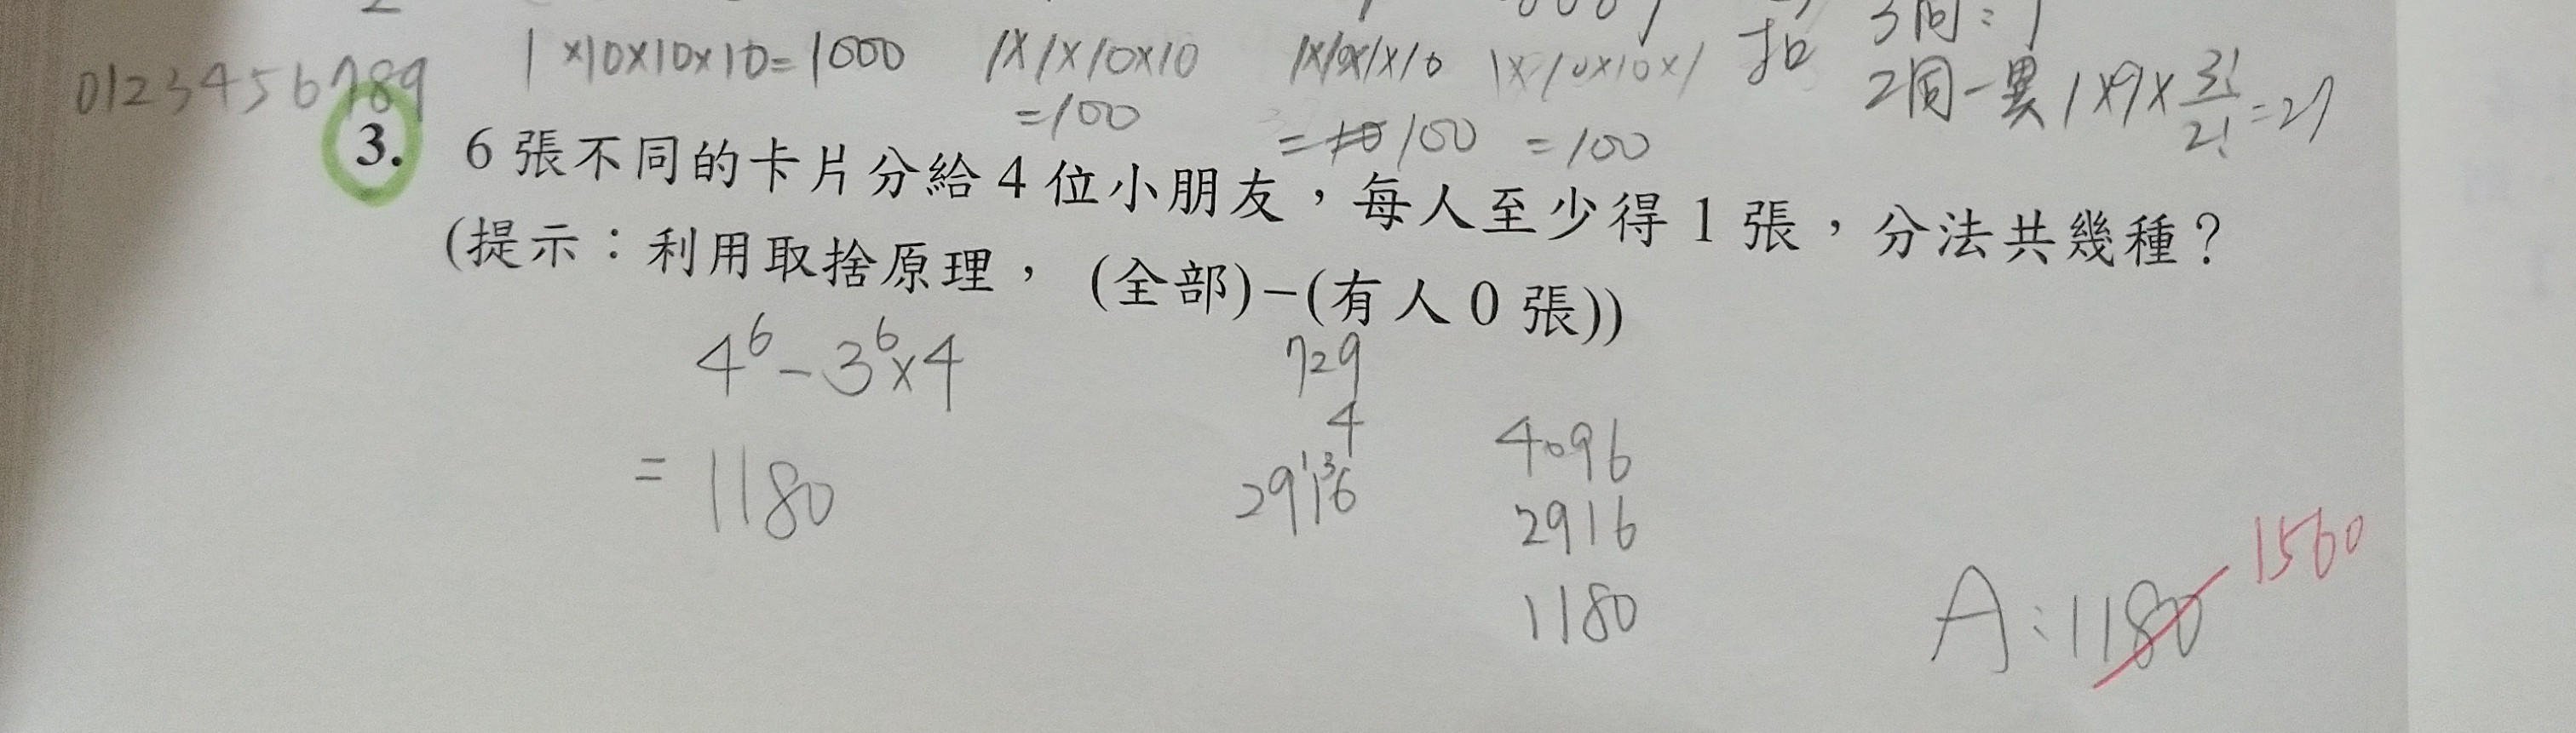 3同:1
0123456789
1×10×10×10=1000
1×1×10×10
=100
1×10×1×10
=100
1×10×10×1
=100
扣
2同一異 1×9×3!/2!=27
3. 6張不同的卡片分給4位小朋友，每人至少得1張，分法共幾種？
(提示：利用取捨原理，(全部)−(有人0張))
4⁶−3⁶×4
=1180
729
4
2916
4096
2916
1180
A:1180 1560